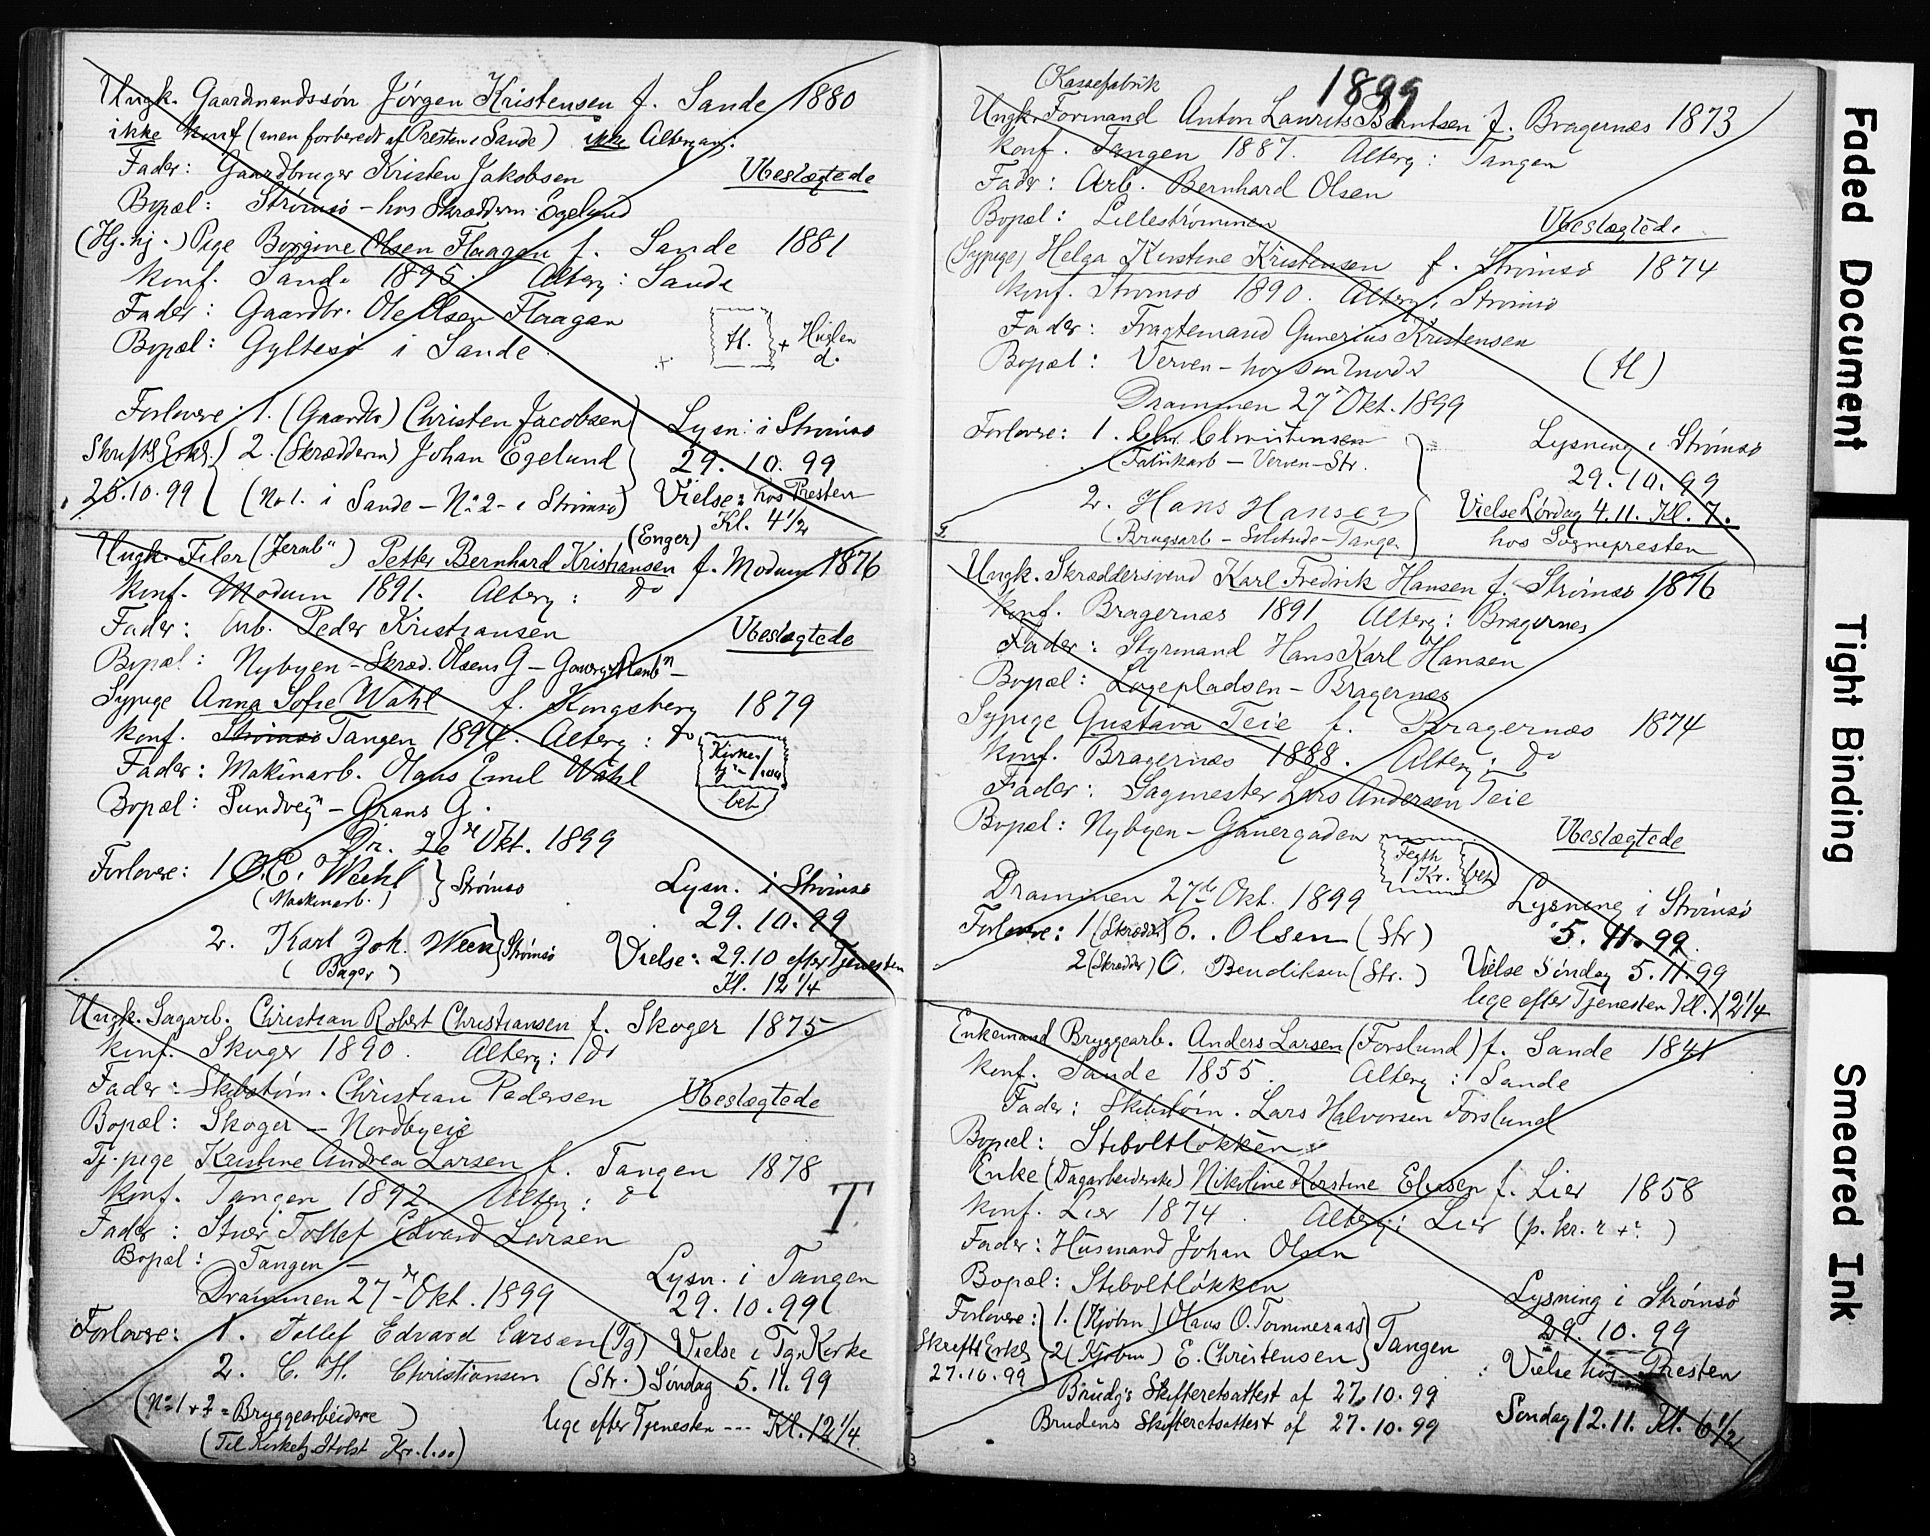 Ungk. Gaardmandssøn Jørgen Kristensen f. Sande 1880
ikke konf (men forberedt af Presten i Sande) ikke Altergang.
Fader: Gaardbruger Kristen Jakobsen Ubeslægtede
Bopæl: Strømsø - hos Skræddern. Egelund
(Hj. hj.) Pige Borgine Olsen Flaagan f. Sande 1881
Konf. Sande 1895. Alterg: Sande
Fader: Gaardbr. Ole Olsen Flaagan
Bopæl: Gyltesø i Sande
Forlovere: 1. (Gaardbr) Christen Jacobsen Lysn: i Strømsø
Skriftl Erkl. 2. (Skrædderm) Johan Egelund 29.10.99
25.10.99 (No 1. i Sande - No 2 - i Strømsø) Vielse: hos Presten
Kl. 4 1/2
(Enger)
Ungk. Filer (Jernb") Petter Bernhard Kristiansen f. Modum 1876
Konf. Modum 1891. Alterg: do
Fader: Arb. Peder Kristiansen Ubeslægtede
Bopæl: Nybyen - Skræd. Olsens G -
Sypige Anna Sofie Wahl f. Kongsberg 1879
Konf. Strømsø Tangen 1894. Alterg: do
Fader: Maskinarb. Olaus Emil Wahl
Bopæl: Sundvegn - Grans G.
bet
Dr. 26 Okt. 1899
Forlovere: 1 O.E. Wahl Strømsø Lysn. i Strømsø
(Maskinarb.) 29.10.99
2. Karl Joh. Ween Strømsø Vielse: 29.10 efter Tjenesten
(Bager) Kl. 12 1/4
Ungk. Sagarb. Christian Robert Christiansen f. Skoger 1875
Konf. Skoger 1890. Alterg: do
Fader: Skibstøm. Christian Pedersen Ubeslægtede
Bopæl: Skoger - Nordbyeie
Tj. pige Kristine Andrea Larsen f. Tangen 1878
Konf. Tangen 1892 Alterg: do
T
Fader: Stuer Tollef Edvard Larsen
Bopæl: Tangen - Lysn. i Tangen
Drammen 27 Okt. 1899 29.10.99
Forlovere: 1. Tollef Edvard Larsen (Tg) Vielse i Tg. Kirke
2. C. H. Christiansen (Str.) Søndag 5.11.99
(No 1 + 2 = Bryggearbeidere) lige efter Tjenesten --- Kl. 12 1/4
(Til Kirketj. Holst Kr. 1.00)
1899
(Kassefabrik
Ungk. Formand Anton Laurits Berntsen f. Bragernes 1873
Konf. Tangen 1887. Alterg: Tangen
Fader: Arb. Bernhard Olsen
Bopæl: Lillestrømmen Ubeslægtede
(Sypige) Helga Kirstine Kristensen f. Strømsø 1874
Konf. Strømsø 1890. Alterg: Strømsø
Fader: Fragtemand Gunerius Kristensen
Bopæl: Verven - hos sin Moder
Drammen 27 Okt. 1899
Forlovere: 1. Chr. Christensen Lysning i Strømsø
(Fabrikarb - Verven - Str. 29.10.99
2. Hans Hansen Vielse Lørdag 4.11. Kl. 7.
(Brugsarb - Solitude - Tangen) hos Sognepresten
Ungk. Skræddersvend Karl Fredrik Hansen f. Strømsø 1876
Konf. Bragernæs 1891 Alterg: Bragernes
Fader: Styrmand Hans Karl Hansen
Bopæl: Løgepladsen - Bragernæs
Sypige Gustava Teie f. Bragernæs 1874
Konf. Bragernæs 1888. Alterg: do
Fader: Sagmester Lars Andersen Teie
Bopæl: Nybyen - Ubeslægtede
1 Kr. bet
Drammen 27 Okt. 1899 Lysning i Strømsø
Forlovere: 1 (Skrædder) O. Olsen (Str) 5.11.99
2 (Skrædder) O. Bendiksen (Str.) Vielse Søndag 5.11.99
lige efter Tjenesten Kl. 12 1/4
Enkemand Bryggearb. Anders Larsen (Forslund) f. Sande 1841
Konf. Sande 1855. Alterg: Sande
Fader: Skibstøm. Lars Halvorsen Forslund
Bopæl: Stiboltløkken
Enke (Dagarbeiderske) Nikoline Kirstine Eliasen f. Lier 1858
Konf. Lier 1874. Alterg: Lier
Fader: Husmand Johan Olsen
Bopæl: Stiboltløkken Lysning i Strømsø
Forlovere: 1. (Kjøbm) Hans O. Tommeraas Tangen 29.10.99
Skriftl Erkl 2 (Kjøbm) E. Christensen Vielse hos Presten
27.10.99 Brudg's Skifteretsattest af 27.10.99
Brudens Skifteretsattest af 27.10.99 Søndag 12.11. Kl. 6 1/2
Faded Document
Tight Binding
Smeared Ink